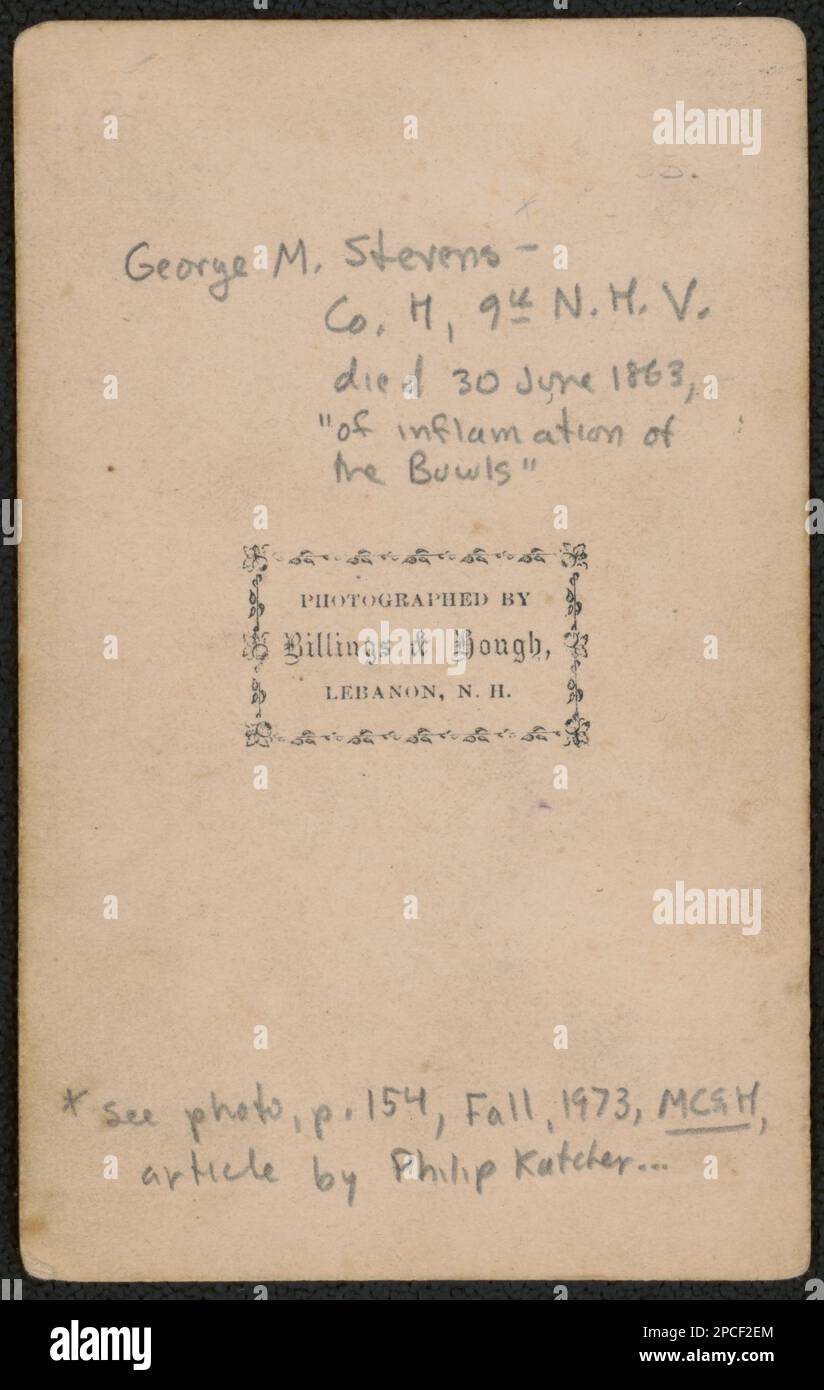 George M. Stevens –
Co. H, 9th N.H.V.
died 30 June 1863,
"of inflamation of
the Buwls"
PHOTOGRAPHED BY
Billings & Hough,
LEBANON, N. H.
* see photo, p. 154, Fall, 1973, MC&H,
article by Philip Katcher...
alamy
alamy
alamy
Image ID: 2PCF2EM
www.alamy.com